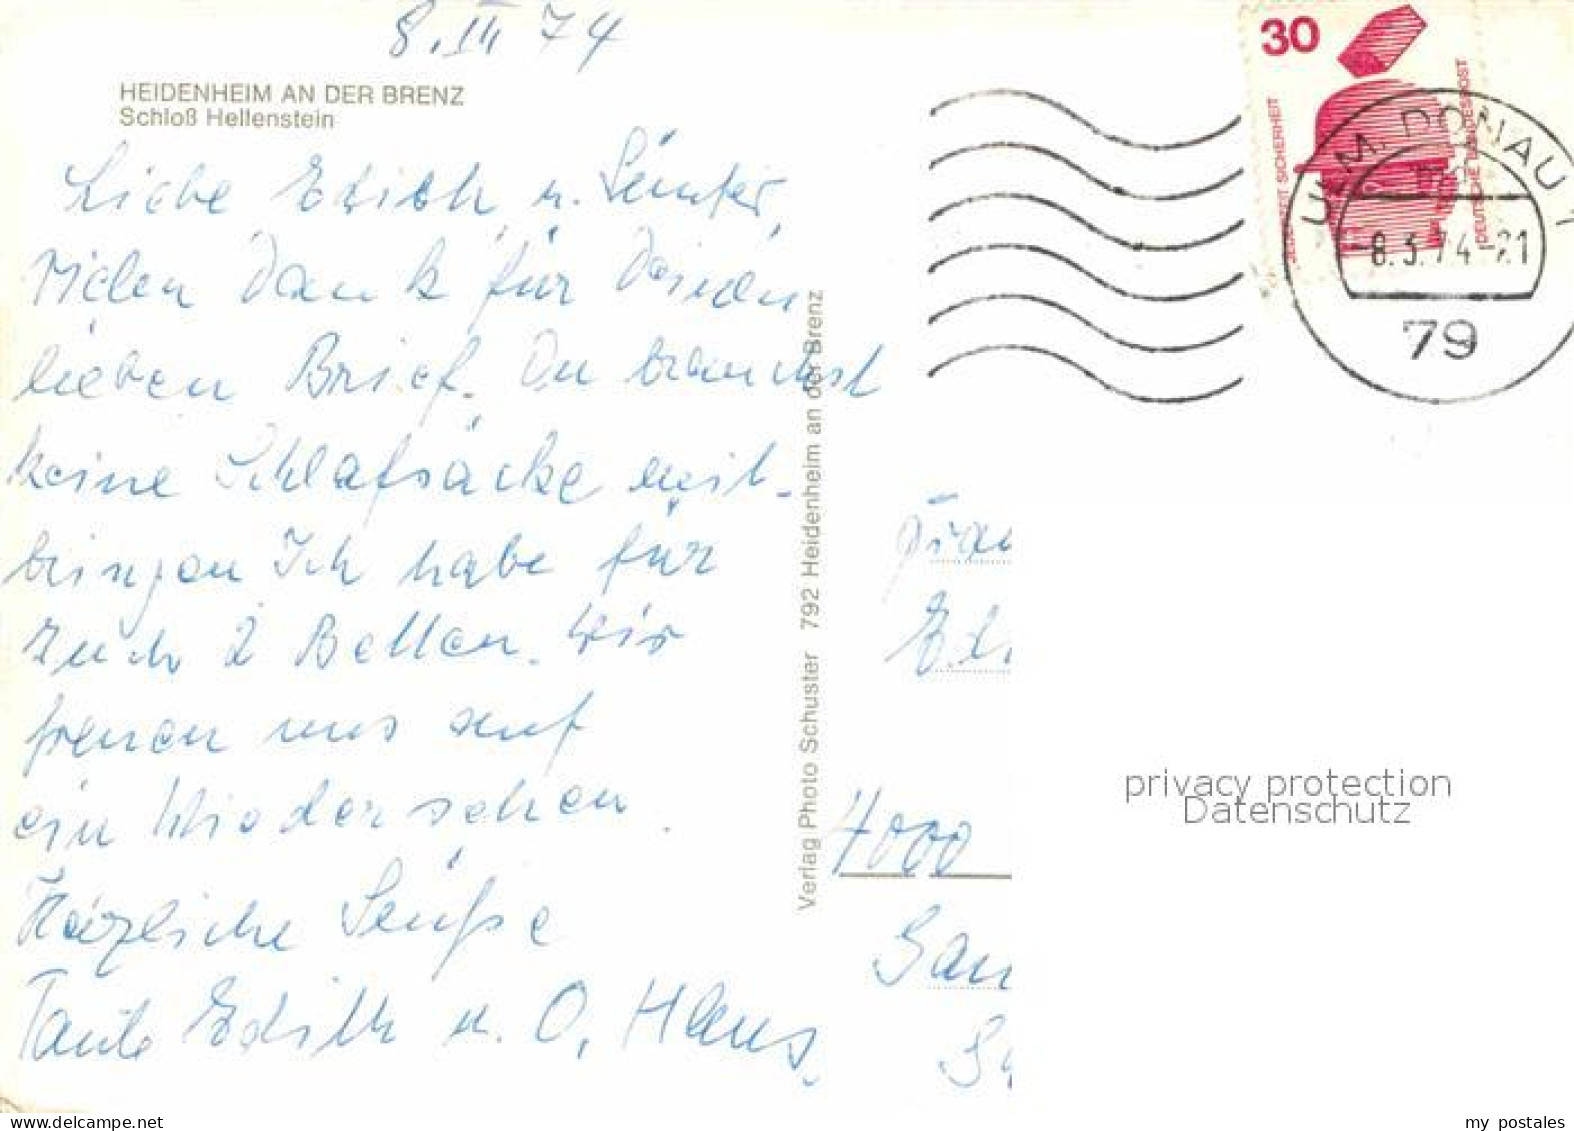 8. III 74
HEIDENHEIM AN DER BRENZ
Schloß Hellenstein
Liebe Edith u. Günter,
Vielen Dank für Deinen
lieben Brief. Du brauchst
keine Schlafsäcke mit-
bringen Ich habe für
Euch 2 Betten. Wir
freuen uns auf
ein Wiedersehen.
Herzliche Grüße
Tante Edith u. O. Hans.
Verlag Photo Schuster 792 Heidenheim an der Brenz
30
JEDERZEIT SICHERHEIT
DEUTSCHE BUNDESPOST
ULM, DONAU 1
8.3.74-21
79
4000
privacy protection
Datenschutz
my postales